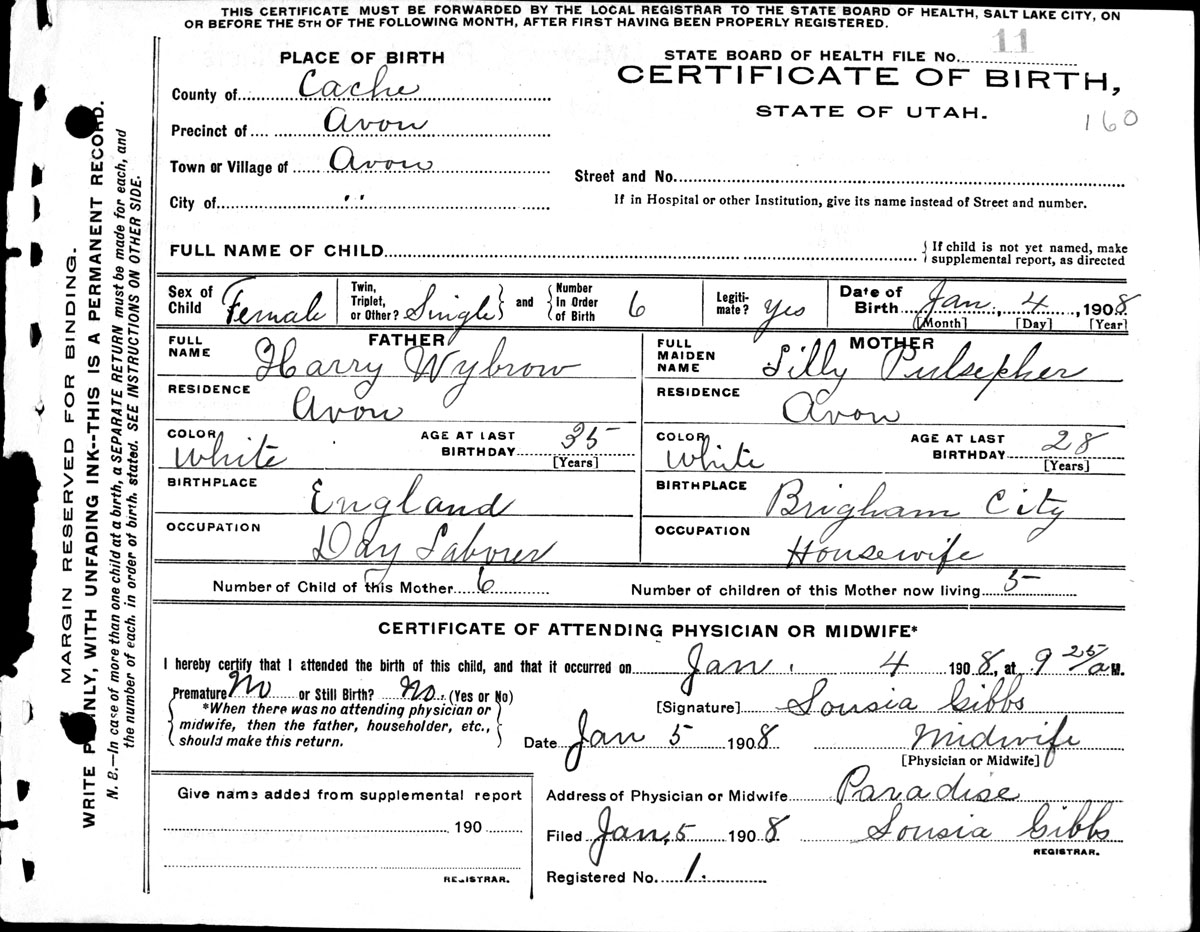 THIS CERTIFICATE MUST BE FORWARDED BY THE LOCAL REGISTRAR TO THE STATE BOARD OF HEALTH, SALT LAKE CITY, ON
OR BEFORE THE 5TH OF THE FOLLOWING MONTH, AFTER FIRST HAVING BEEN PROPERLY REGISTERED.
MARGIN RESERVED FOR BINDING.
WRITE PLAINLY, WITH UNFADING INK--THIS IS A PERMANENT RECORD.
N. B.—In case of more than one child at a birth, a SEPARATE RETURN must be made for each, and
the number of each, in order of birth, stated. SEE INSTRUCTIONS ON OTHER SIDE.
PLACE OF BIRTH
County of Cache
Precinct of Avon
Town or Village of Avon
City of "
STATE BOARD OF HEALTH FILE No. 11
CERTIFICATE OF BIRTH,
STATE OF UTAH.
160
Street and No.
If in Hospital or other Institution, give its name instead of Street and number.
FULL NAME OF CHILD { If child is not yet named, make
supplemental report, as directed
Sex of Child Female Twin, Triplet, or Other? Single and Number In Order of Birth 6 Legiti-mate? Yes Date of Birth Jan, 4, 1908
[Month] [Day] [Year]
FATHER
FULL NAME Harry Wybrow
RESIDENCE Avon
COLOR White AGE AT LAST BIRTHDAY 35 [Years]
BIRTHPLACE England
OCCUPATION Day Labourer
MOTHER
FULL MAIDEN NAME Lilly Pulsepher
RESIDENCE Avon
COLOR White AGE AT LAST BIRTHDAY 28 [Years]
BIRTHPLACE Brigham City
OCCUPATION Housewife
Number of Child of this Mother 6 Number of children of this Mother now living 5
CERTIFICATE OF ATTENDING PHYSICIAN OR MIDWIFE*
I hereby certify that I attended the birth of this child, and that it occurred on Jan. 4 1908, at 9 25/a M.
Premature No or Still Birth? No. (Yes or No)
*When there was no attending physician or
midwife, then the father, householder, etc.,
should make this return.
[Signature] Lousia Gibbs
Date Jan 5 1908 Midwife
[Physician or Midwife]
Give name added from supplemental report
190
REGISTRAR.
Address of Physician or Midwife Paradise
Filed Jan, 5 1908 Lousia Gibbs
REGISTRAR.
Registered No. 1.